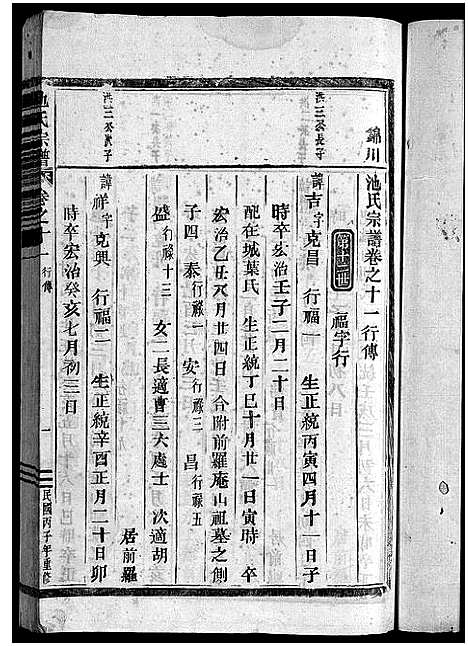 錦川
池氏宗譜卷之十一行傳
第十一冊
福字行
洪三公長子
諱吉字克昌 行福一 生正統丙寅四月十一日子
時卒宏治壬子二月二十日
配在城葉氏 生正統丁巳十月廿一日寅時 卒
宏治乙丑八月廿四日合附前羅庵山祖墓之側
子四 泰行祿一 安行祿三 昌行祿五
盛行祿十三 女二長適曹三六處士 次適胡
居前羅
洪三公次子
諱祥字克興 行福二 生正統辛酉正月二十日卯
時卒宏治癸亥七月初三日
池氏宗譜 卷之十一 行傳 一 民國丙子年重修